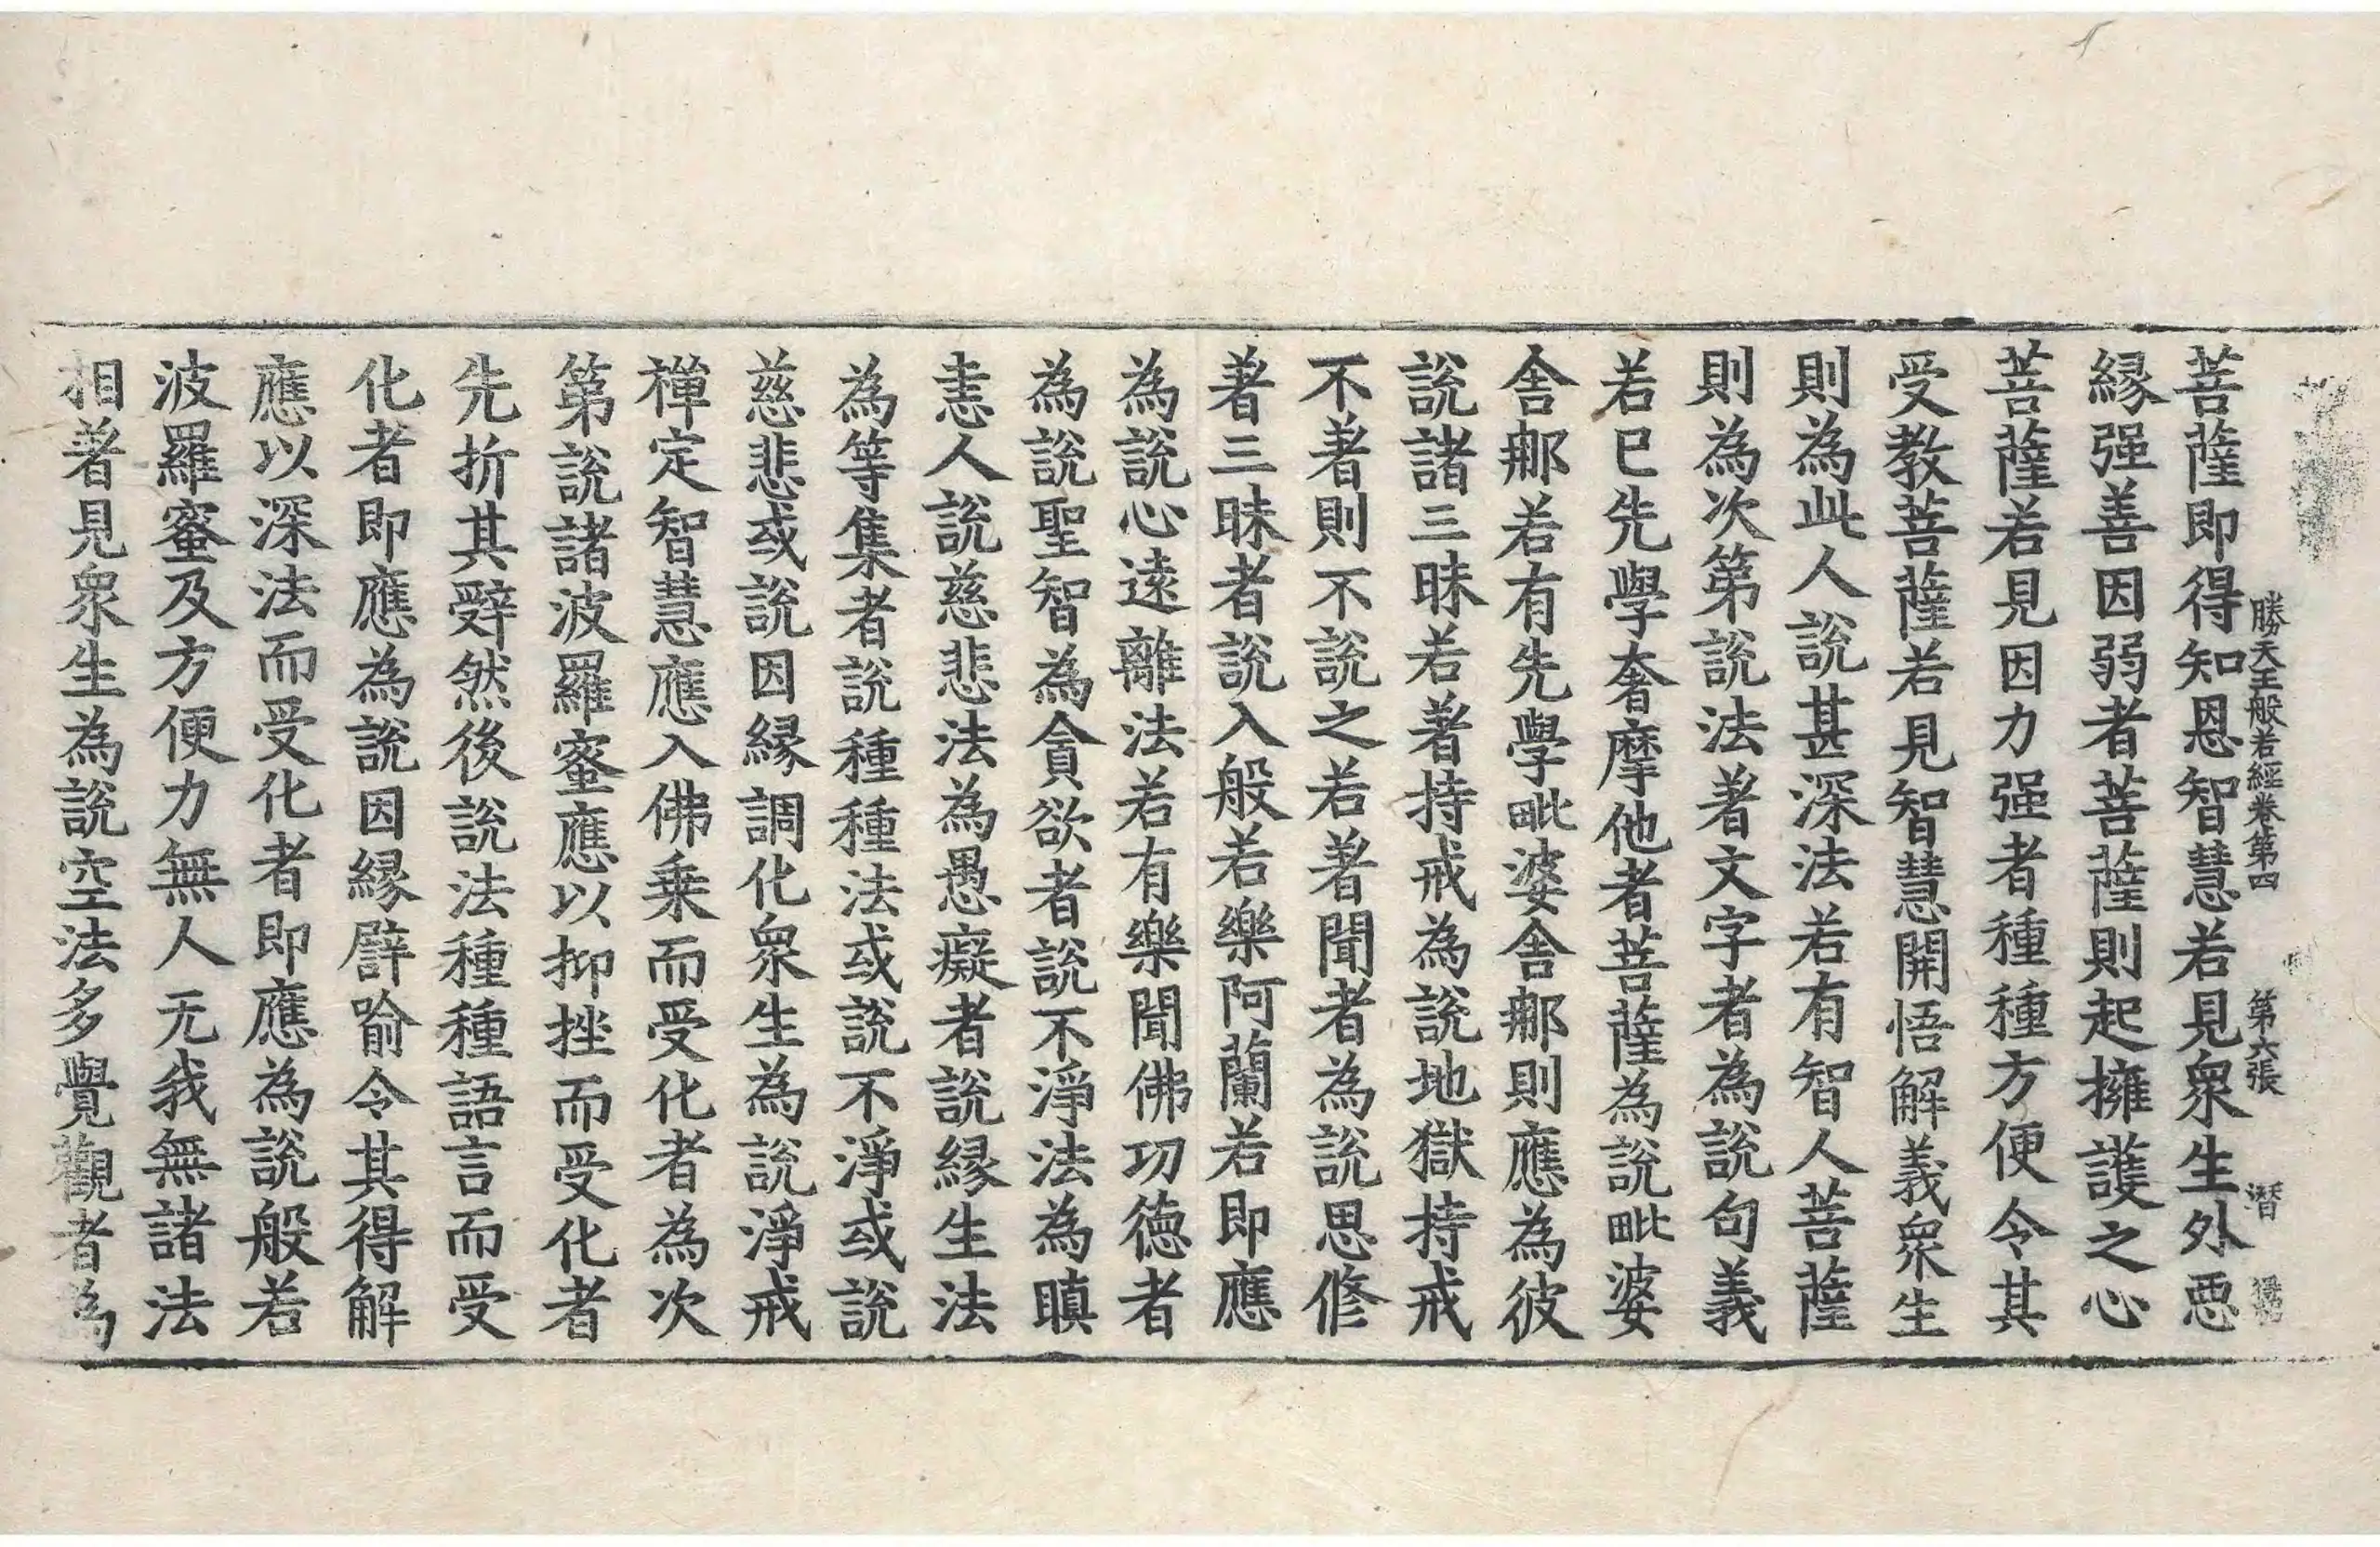 勝天王般若經卷第四　第六張　潛
菩薩即得知恩智慧若見衆生外惡
縁强善因弱者菩薩則起擁護之心
菩薩若見因力强者種種方便令其
受教菩薩若見智慧開悟解義衆生
則為此人說甚深法若有智人菩薩
則為次第說法著文字者為說句義
若已先學奢摩他者菩薩為說毗婆
舍那若有先學毗婆舍那則應為彼
說諸三昧若著持戒為說地獄持戒
不著則不說之若著聞者為說思修
著三昧者說入般若樂阿蘭若即應
為說心遠離法若有樂聞佛功德者
為說聖智為貪欲者說不淨法為瞋
恚人說慈悲法為愚癡者說縁生法
為等集者說種種法或說不淨或說
慈悲或說因縁調化衆生為說淨戒
禪定智慧應入佛乗而受化者為次
第說諸波羅蜜應以抑挫而受化者
先折其辭然後說法種種語言而受
化者即應為說因縁譬喻令其得解
應以深法而受化者即應為說般若
波羅蜜及方便力無人无我無諸法
相著見衆生為說空法多覺觀者為